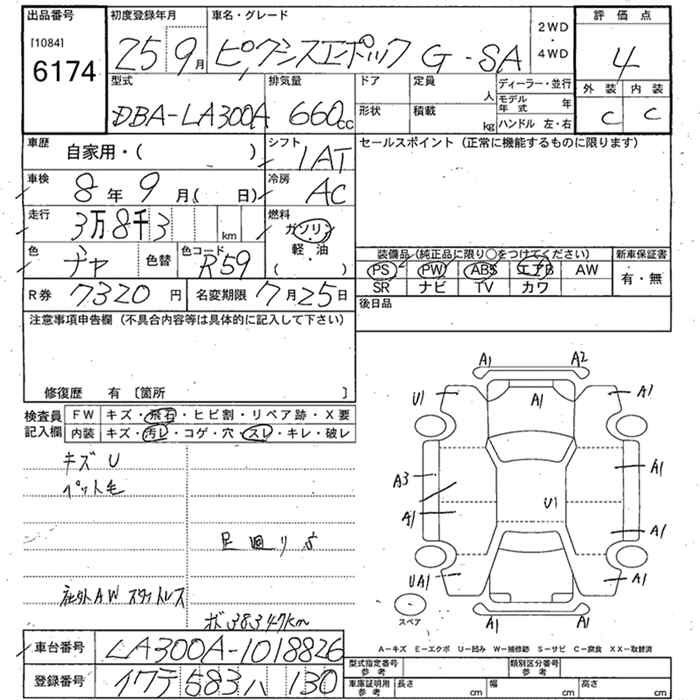 出品番号 初度登録年月 車名・グレード 2WD・4WD 評価点
[1084]
6174
25 9月 ピクシスエポック G-SA 4
型式 排気量 ドア 定員 人 ディーラー・並行 外装 内装
DBA-LA300A 660cc 形状 積載 kg モデル年式 年 C C
ハンドル 左・右
車歴 自家用・( ) シフト IAT セールスポイント (正常に機能するものに限ります)
車検 8年 9月( 日) 冷房 AC
走行 3万8千3 km 燃料 ガソリン
軽・油
( ・ )
色 チャ 色替 色コード R59
装備品(純正品に限り○をつけてください) 新車保証書
PS PW ABS エアB AW 有・無
SR ナビ TV カワ
R券 7320円 名変期限 7月25日 後日品
注意事項申告欄 (不具合内容等は具体的に記入して下さい)
修復歴 有 〔箇所 〕
検査員記入欄 FW キズ・飛石・ヒビ割・リペア跡・X要
内装 キズ・汚レ・コゲ・穴・スレ・キレ・破レ
キズ U
ペット毛
足廻りサ
社外AW スタットレス
ボ 38347km
A1 A2
U1 A1 A1
A3 A1
A1 U1 A1
UA1 A1
スペア A1 A1
A-キズ E-エクボ U-凹み W-補修跡 S-サビ C-腐食 XX-取替済
車台番号 LA300A-1018826
登録番号 イワテ583ハ 130
型式指定番号 参考 類別区分番号 参考
車庫証明用 参考 長さ cm 幅 cm 高さ cm